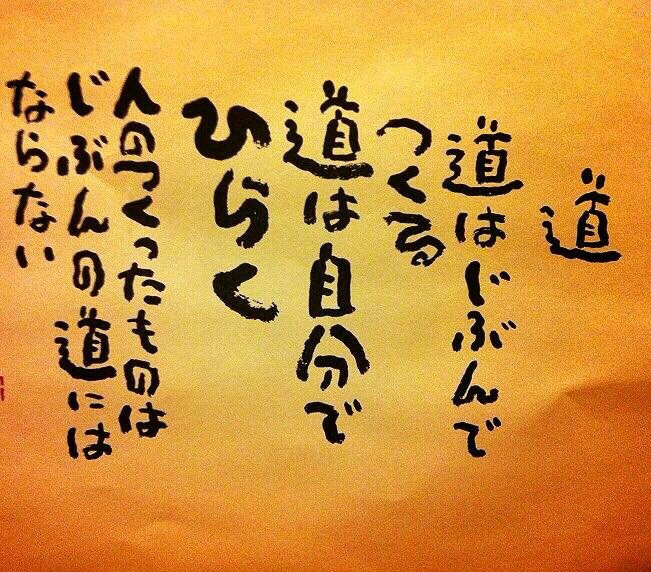 道
道はじぶんで
つくる
道は自分で
ひらく
人のつくったものは
じぶんの道には
ならない